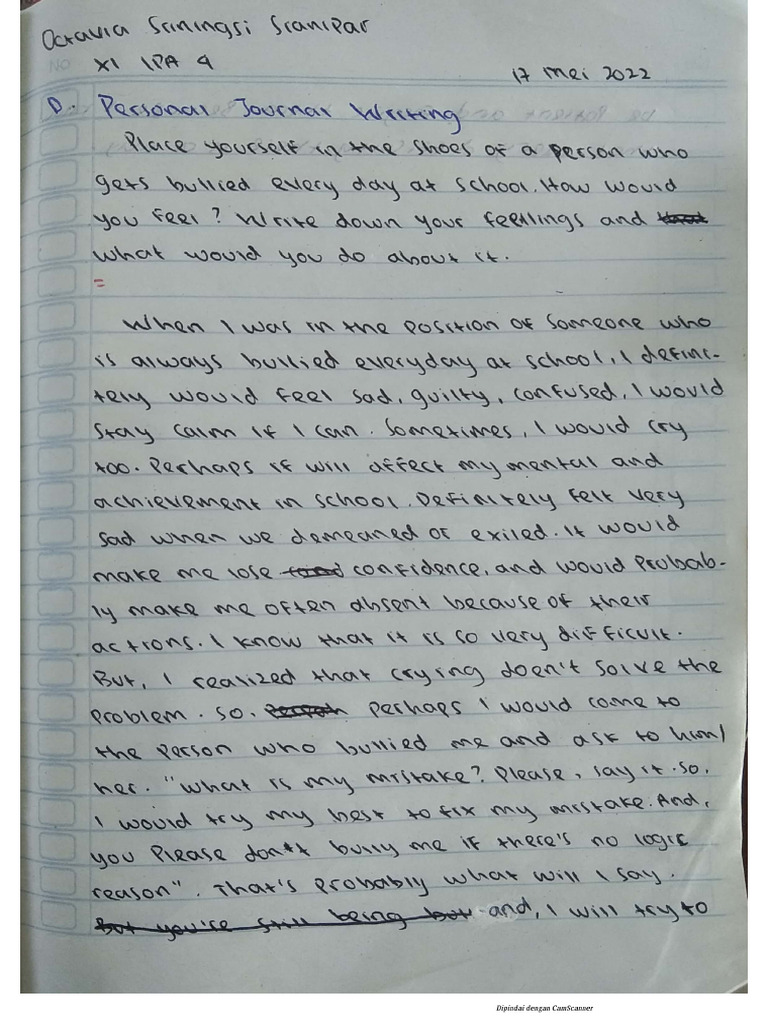 Octavia Sriningsi Sianipar
NO
XI IPA 4
17 Mei 2022
D. Personal Journal Writing
Place yourself in the shoes of a person who
gets bullied every day at school. How would
you feel? Write down your feellings and
what would you do about it.
=
When I was in the position of someone who
is always bullied everyday at school, I defini-
tely would feel sad, guilty, confused, I would
stay calm if I can. Sometimes, I would cry
too. Perhaps if will affect my mental and
achievement in school. Definitely felt very
sad when we demeaned or exiled. It would
make me lose confidence, and would probab-
ly make me often absent because of their
actions. I know that it is so very difficult.
But, I realized that crying doen't solve the
problem. So, perhaps I would come to
the person who bullied me and ask to him/
her. "What is my mistake? Please, say it. So,
I would try my best to fix my mistake. And,
you please don't bully me if there's no logic
reason". That's probably what will I say.
But you're still being but and, I will try to
Dipindai dengan CamScanner